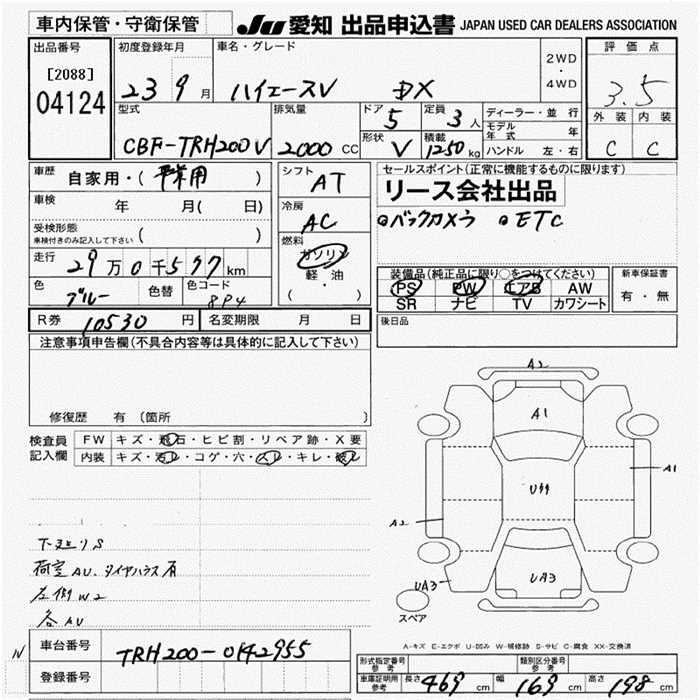 車内保管・守衛保管
JU 愛知 出品申込書 JAPAN USED CAR DEALERS ASSOCIATION
出品番号
[2088]
04124
初度登録年月
23 9月
車名・グレード
ハイエースV DX
2WD
・
4WD
評価点
3.5
外装 内装
C C
型式
CBF-TRH200V
排気量
2000 CC
ドア 5
定員 3人
形状 V
積載 1250 kg
ディーラー・並行
モデル年式 年
ハンドル 左・右
車歴 自家用・( )
車検 年 月( 日)
受検形態
車検付きのみ記入して下さい ( )
走行 29万0千577km
色 ブルー 色替 色コード 8P4
シフト AT
冷房 AC
燃料
ガソリン
軽・油
( ・ )
セールスポイント(正常に機能するものに限ります)
リース会社出品
バックカメラ ETC
装備品(純正品に限り○をつけてください)
PS PW エアB AW
SR ナビ TV カワシート
新車保証書
有・無
後日品
R券 10530 円 名変期限 月 日
注意事項申告欄(不具合内容等は具体的に記入して下)
修復歴 有 (箇所
検査員記入欄
FW キズ・飛石・ヒビ割・リペア跡・X要
内装 キズ・汚レ・コゲ・穴・スレ・キレ・破レ
A2
A1
A1
U
A2
UA3
UA3
スペア
下廻りS
荷室AU、タイヤハウス有
左側W2
各AU
A-キズ E-エクボ U-凹み W-補修跡 S-サビ C-腐食 XX-交換済
N
車台番号 TRH200-0142955
登録番号
形式指定番号 参考
類別区分番号 参考
車庫証明用 参考 長さ 469 cm 幅 169 cm 高さ 198 cm